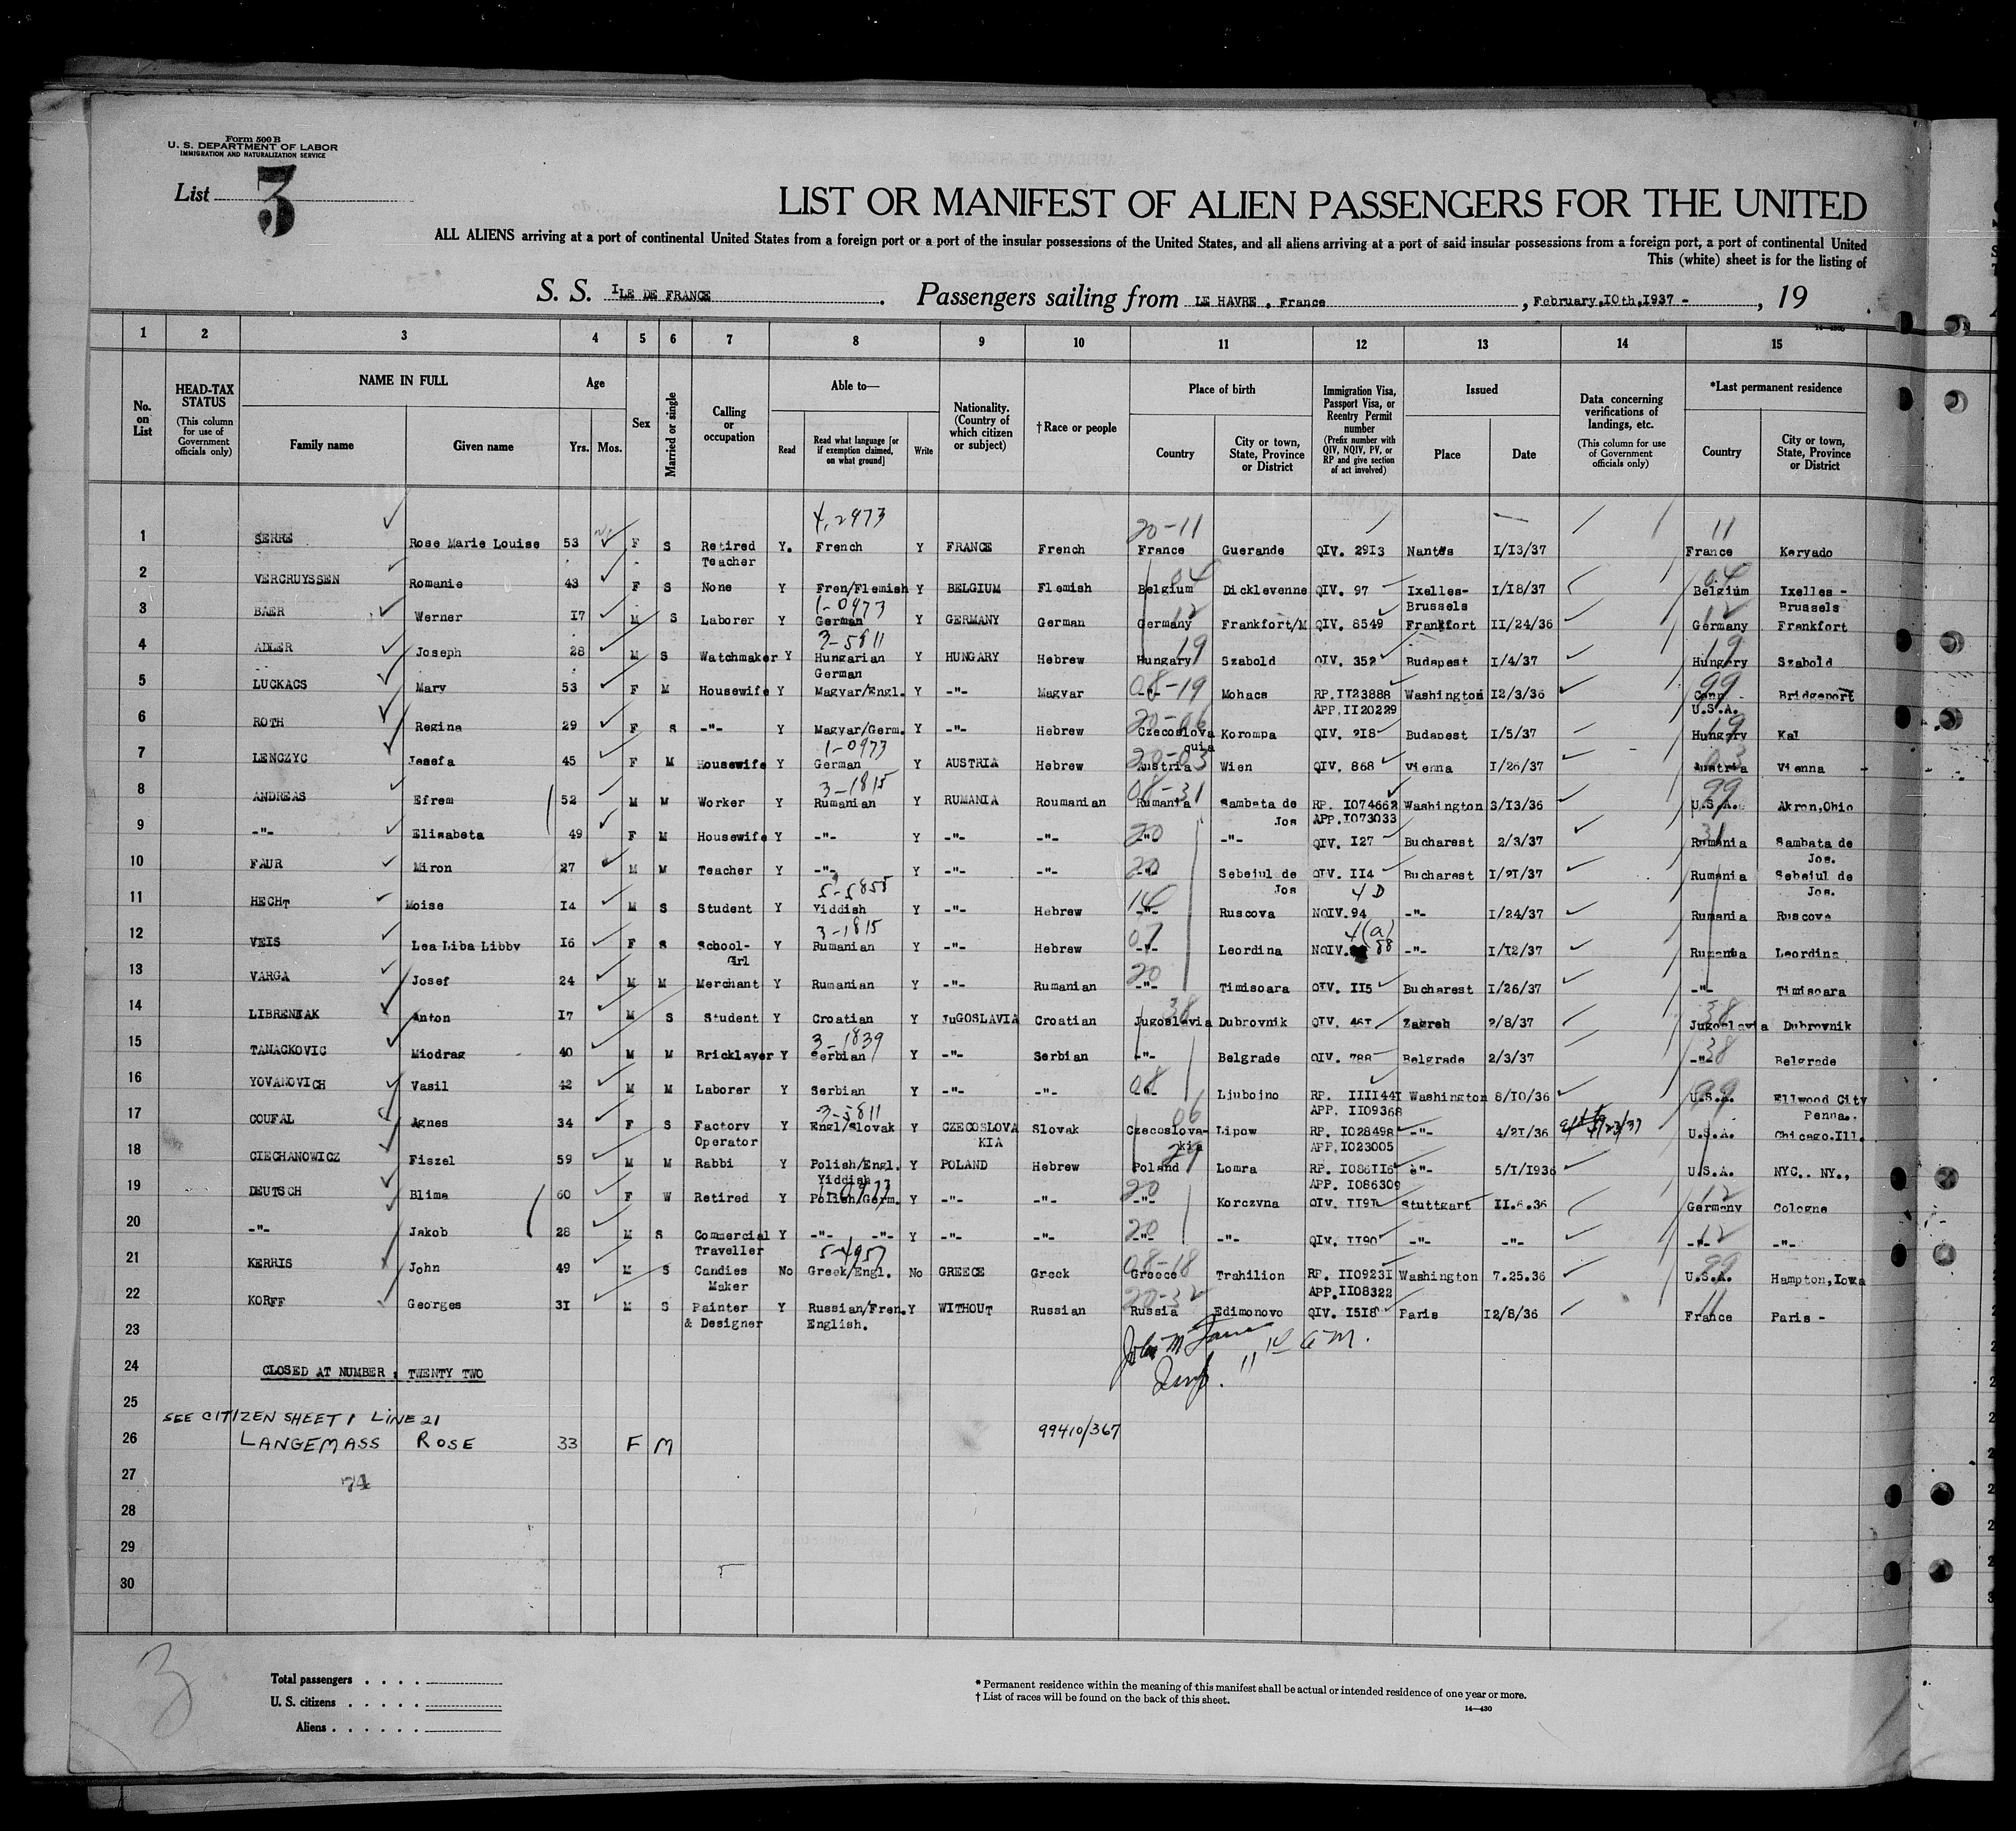 Form 500 B
U. S. DEPARTMENT OF LABOR
IMMIGRATION AND NATURALIZATION SERVICE
List 3
LIST OR MANIFEST OF ALIEN PASSENGERS FOR THE UNITED
ALL ALIENS arriving at a port of continental United States from a foreign port or a port of the insular possessions of the United States, and all aliens arriving at a port of said insular possessions from a foreign port, a port of continental United
This (white) sheet is for the listing of
S. S. ILE DE FRANCE . Passengers sailing from LE HAVRE , France , February,10th,1937 - , 19
14-430
1 2 3 4 5 6 7 8 9 10 11 12 13 14 15
No. on List
HEAD-TAX STATUS (This column for use of Government officials only)
NAME IN FULL
Family name Given name
Age
Yrs. Mos.
Sex
Married or single
Calling or occupation
Able to—
Read
Read what language [or if exemption claimed, on what ground]
Write
Nationality. (Country of which citizen or subject)
†Race or people
Place of birth
Country
City or town, State, Province or District
Immigration Visa, Passport Visa, or Reentry Permit number (Prefix number with QIV, NQIV, PV, or RP and give section of act involved)
Issued
Place Date
Data concerning verifications of landings, etc. (This column for use of Government officials only)
*Last permanent residence
Country
City or town, State, Province or District
4,2973 20-11 11
1 SERRE Rose Marie Louise 53 F S Retired Y. French Y FRANCE French France Guerande QIV. 2913 Nantes 1/13/37 France Kervado
Teacher
04 04
2 VERCRUYSSEN Romanie 43 F S None Y Fren/Flemish Y BELGIUM Flemish Belgium Dicklevenne QIV. 97 Ixelles- 1/18/37 Belgium Ixelles -
1-0973 12 Brussels 12 Brussels
3 BAER Werner 17 M S Laborer Y German Y GERMANY German Germany Frankfort/M QIV. 8549 Frankfort 11/24/36 Germany Frankfort
3-5811 19 19
4 ADLER Joseph 28 M S Watchmaker Y Hungarian Y HUNGARY Hebrew Hungary Szabold QIV. 352 Budapest 1/4/37 Hungary Szabold
German
08-19 99
5 LUCKACS Mary 53 F M Housewife Y Magyar/Engl. Y -"- Magyar -"- Mohacs RP.1123888 Washington 12/3/36 Conn Bridgeport
APP.1120229 U.S.A.
20-06 19
6 ROTH Regina 29 F S -"- Y Magyar/Germ. Y -"- Hebrew Czecoslova Korompa QIV. 218 Budapest 1/5/37 Hungary Kal
1-0973 quia
20-03 03
7 LENCZYC Josefa 45 F M Housewife Y German Y AUSTRIA Hebrew Austria Wien QIV. 868 Vienna 1/26/37 Austria Vienna -
3-1815 08-31 99
8 ANDREAS Efrem 52 M M Worker Y Rumanian Y RUMANIA Roumanian Rumania Sambata de RP. 1074662 Washington 3/13/36 U.S.A. Akron,Ohio
Jos APP.1073033
20 31
9 -"- Elisabeta 49 F M Housewife Y -"- Y -"- -"- -"- -"- QIV. 127 Bucharest 2/3/37 Rumania Sambata de
Jos.
20
10 FAUR Miron 27 M M Teacher Y -"- Y -"- -"- -"- Sebeiul de QIV. 114 Bucharest 1/21/37 Rumania Sebeiul de
5-5855 Jos 4 D Jos.
11 HECHT Moise 14 M S Student Y Yiddish Y -"- Hebrew -"- Ruscova NQIV.94 -"- 1/24/37 Rumania Ruscova
3-1815 07 4(a)
12 VEIS Lea Liba Libby 16 F S School- Y Rumanian Y -"- Hebrew -"- Leordina NQIV. 88 -"- 1/12/37 Rumania Leordina
Girl
20
13 VARGA Josef 24 M M Merchant Y Rumanian Y -"- Rumanian -"- Timisoara QIV. 115 Bucharest 1/26/37 -"- Timisoara
38 38
14 LIBRENJAK Anton 17 M S Student Y Croatian Y JUGOSLAVIA Croatian Jugoslavia Dubrovnik QIV. 461 Zagreb 2/8/37 Jugoslavia Dubrovnik
3-1839 38
15 TANACKOVIC Miodrag 40 M M Bricklayer Y Serbian Y -"- Serbian -"- Belgrade QIV. 788 Belgrade 2/3/37 -"- Belgrade
08 99
16 YOVANOVICH Vasil 42 M M Laborer Y Serbian Y -"- -"- -"- Ljuboino RP. 1111441 Washington 8/10/36 U.S.A. Ellwood City
3-5811 06 APP. 1109368 Penna..
17 COUFAL Agnes 34 F S Factory Y Engl/Slovak Y CZECOSLOVA Slovak Czecoslova- Lipow RP. 1028498 -"- 4/21/36 U.S.A. Chicago.Ill.
Operator KIA kia APP.1023005
29
18 CIECHANOWICZ Fiszel 59 M M Rabbi Y Polish/Engl. Y POLAND Hebrew Poland Lomra RP. 1086116 -"- 5/1/1936 U.S.A. NYC.. NY.,
Yiddish APP. 1086309
20 12
19 DEUTSCH Blima 60 F W Retired Y Polish/Germ. Y -"- -"- -"- Korczyna QIV. 1191 Stuttgart 11.6.36 Germany Cologne
20 12
20 -"- Jakob 28 M S Commercial Y -"- -"- Y -"- -"- -"- -"- QIV. 1190 -"- -"- -"- -"-
Traveller
5-4957 08-18 99
21 KERRIS John 49 M S Candies No Greek/Engl. No GREECE Greek Greece Trahilion RP. 1109231 Washington 7.25.36 U.S.A. Hampton,Iowa
Maker APP.1108322
11
22 KORFF Georges 31 M S Painter Y Russian/Fren. Y WITHOUT Russian Russia Edimonovo QIV. 1518 Paris 12/8/36 France Paris -
& Designer English.
23
24 CLOSED AT NUMBER : TWENTY TWO
25
SEE CITIZEN SHEET 1 LINE 21
26 LANGEMASS ROSE 33 F M 99410/367
27
74
28
29
30
3
Total passengers
U. S. citizens
Aliens
* Permanent residence within the meaning of this manifest shall be actual or intended residence of one year or more.
† List of races will be found on the back of this sheet.
14—430